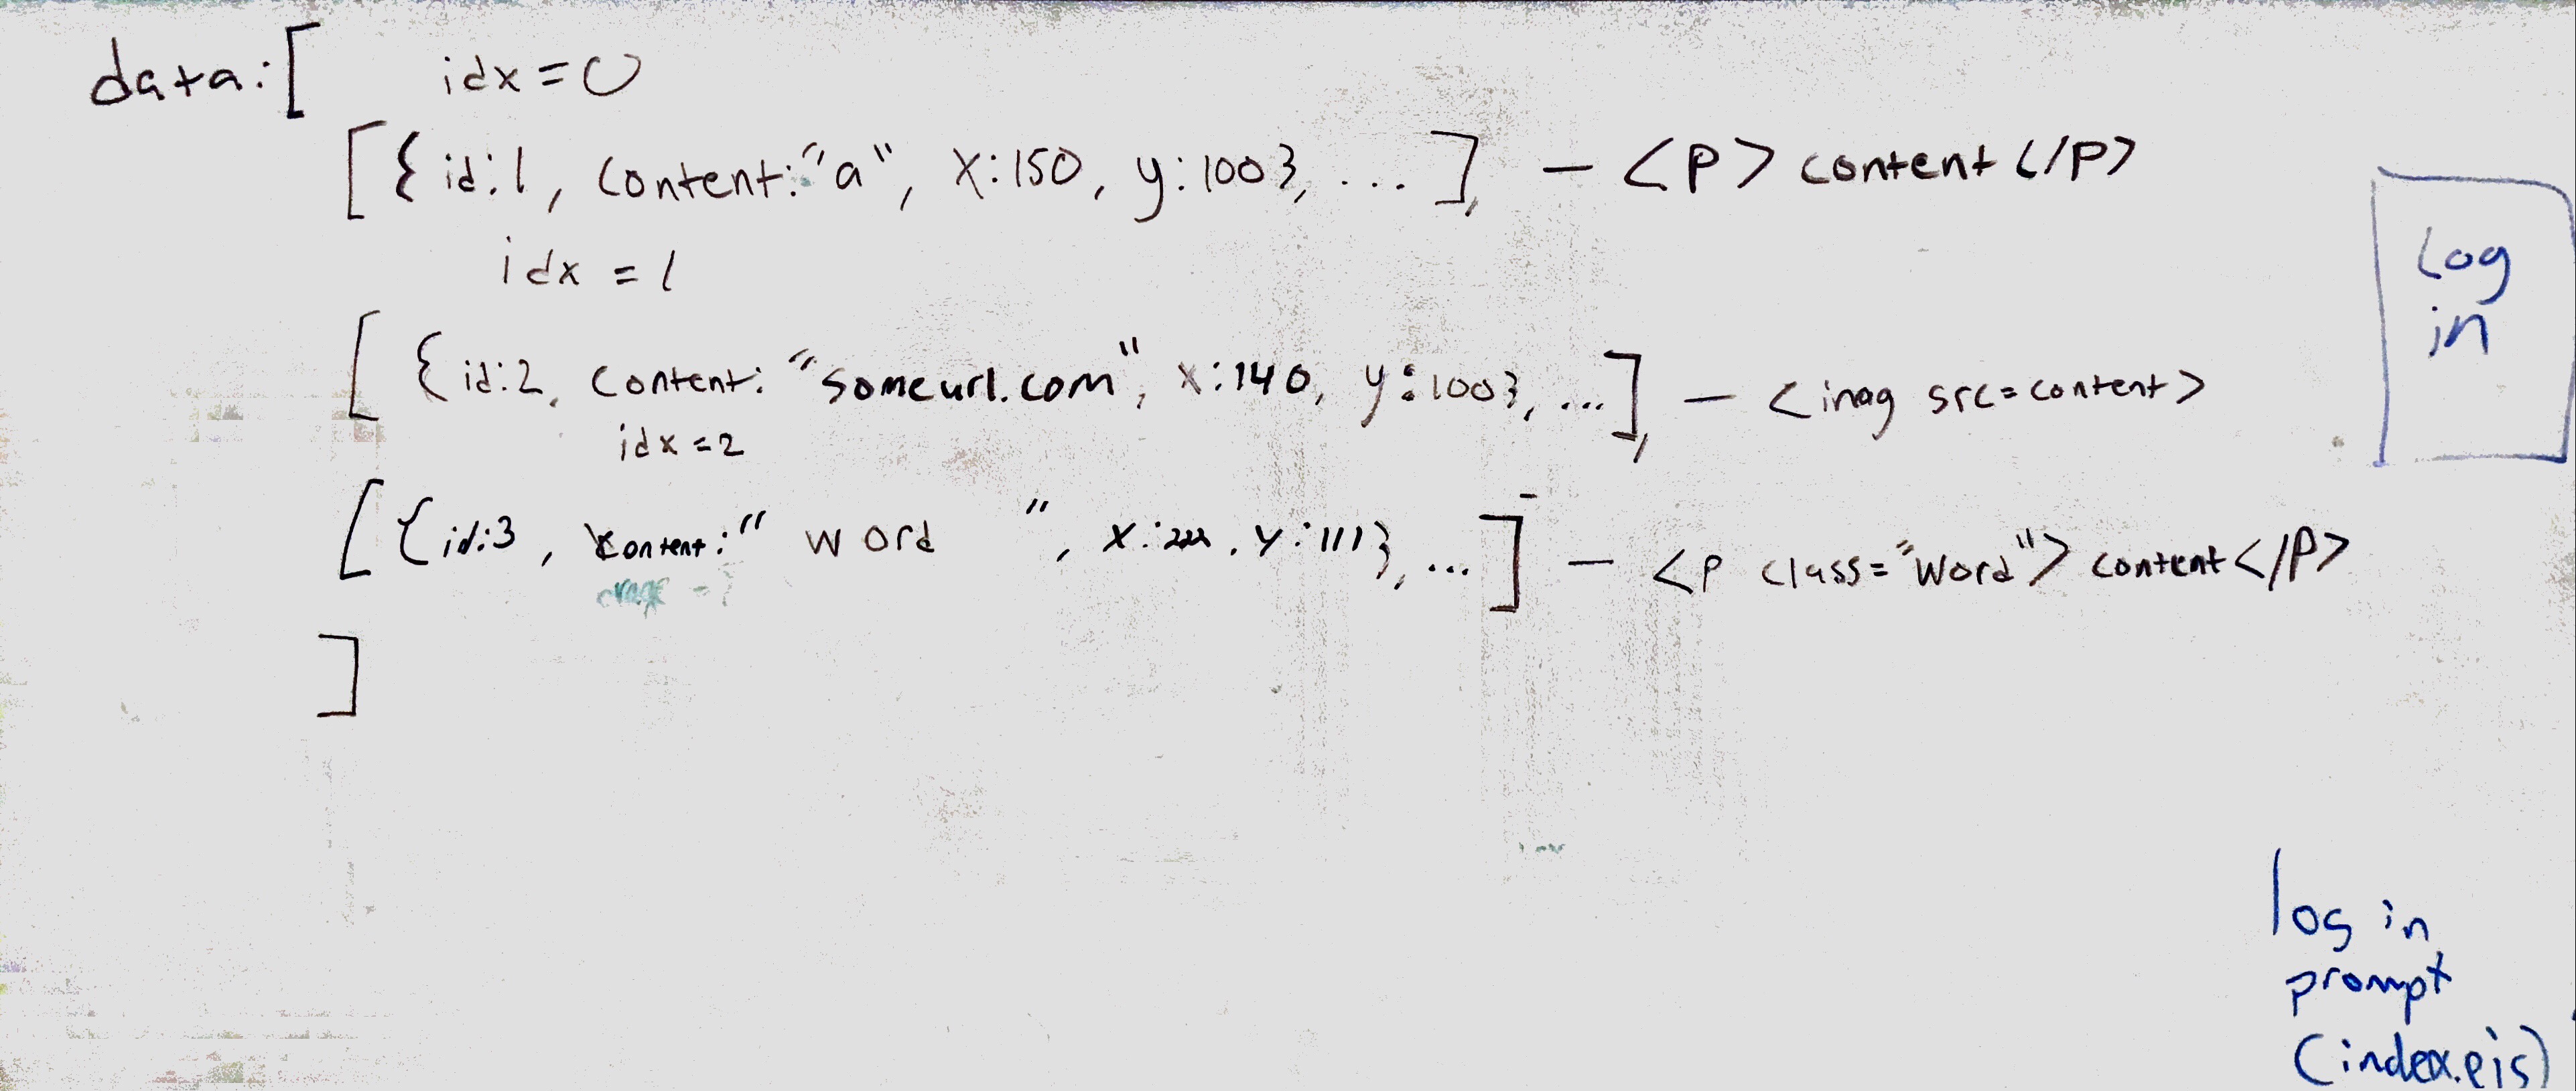 data:[ idx=0
[{id:1, content:"a", x:150, y:100}, ...], — <p> content </p>
idx = 1
[ {id:2, content: "someurl.com", x:140, y:100}, ...], — <imag src=content>
idx=2
[ {id:3, content:" word ", x:222, y:111}, ...] — <p class="word"> content </p>
]
Log
in
log in
prompt
(index.ejs)